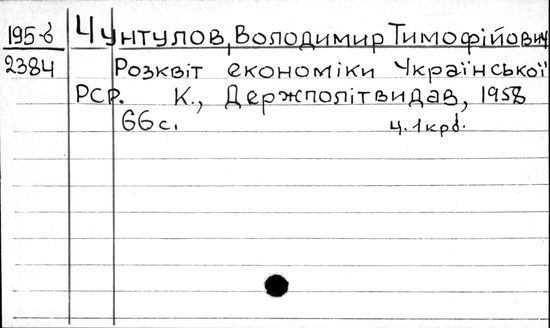 195-б Чунтулов, Володимир Тимофійович
2384 Розквіт економіки Української
РСР. К., Держполітвидав, 1958
66 с. ц. 1 крб.